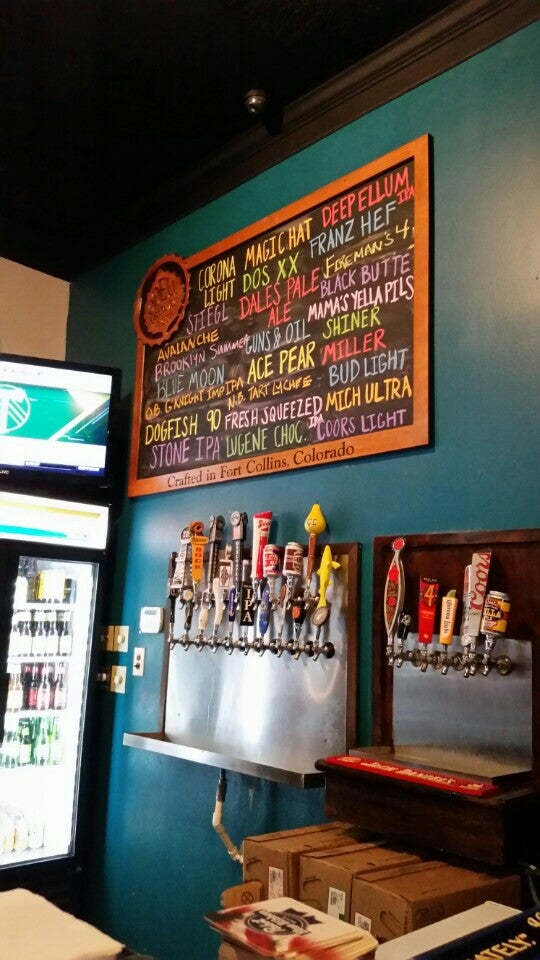 CORONA LIGHT
MAGIC HAT
DEEP ELLUM IPA
STIEGL
DOS XX
FRANZ HEF
AVALANCHE
DALES PALE ALE
FIREMAN'S 4
BROOKLYN SUMMER
GUNS & OIL
BLACK BUTTE
BLUE MOON
ACE PEAR
MAMA'S YELLA PILS
O.B. G'KNIGHT IMP IPA
N.B. TART LYCHEE
SHINER
DOGFISH 90
FRESH SQUEEZED IPA
MILLER
STONE IPA
LUGENE CHOC.
BUD LIGHT
MICH ULTRA
COORS LIGHT
Crafted in Fort Collins, Colorado
BOCK
IPA
4
Coors